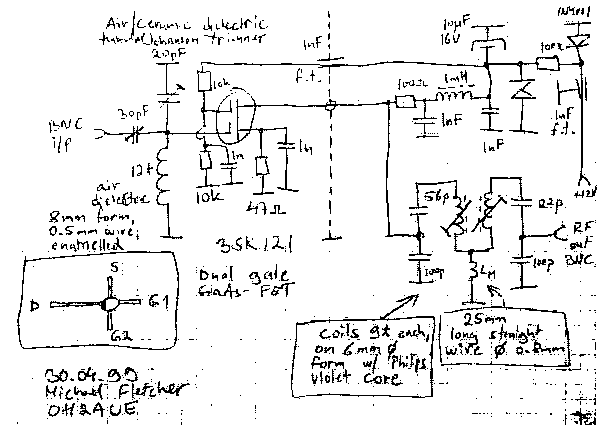 Air/Ceramic dielectric
tubular/Johanson trimmer
20pF
30pF
BNC
i/p
12t
air
dielectric
8mm form,
0.5mm wire,
enamelled
10k
10k
1n
47Ω
1n
3SK121
Dual gate
GaAs-FET
1nF
f.t.
10µF
16V
100Ω
1mH
1nF
1nF
1nF
f.t.
+12V
56p
100p
22p
100p
LM
RF
out
BNC
S
D
G1
G2
coils 9t each,
on 6mm Ø
form w/ Philips
violet core
25mm
long straight
wire Ø 0.8mm
30.04.99
Michael Fletcher
OH2AUE